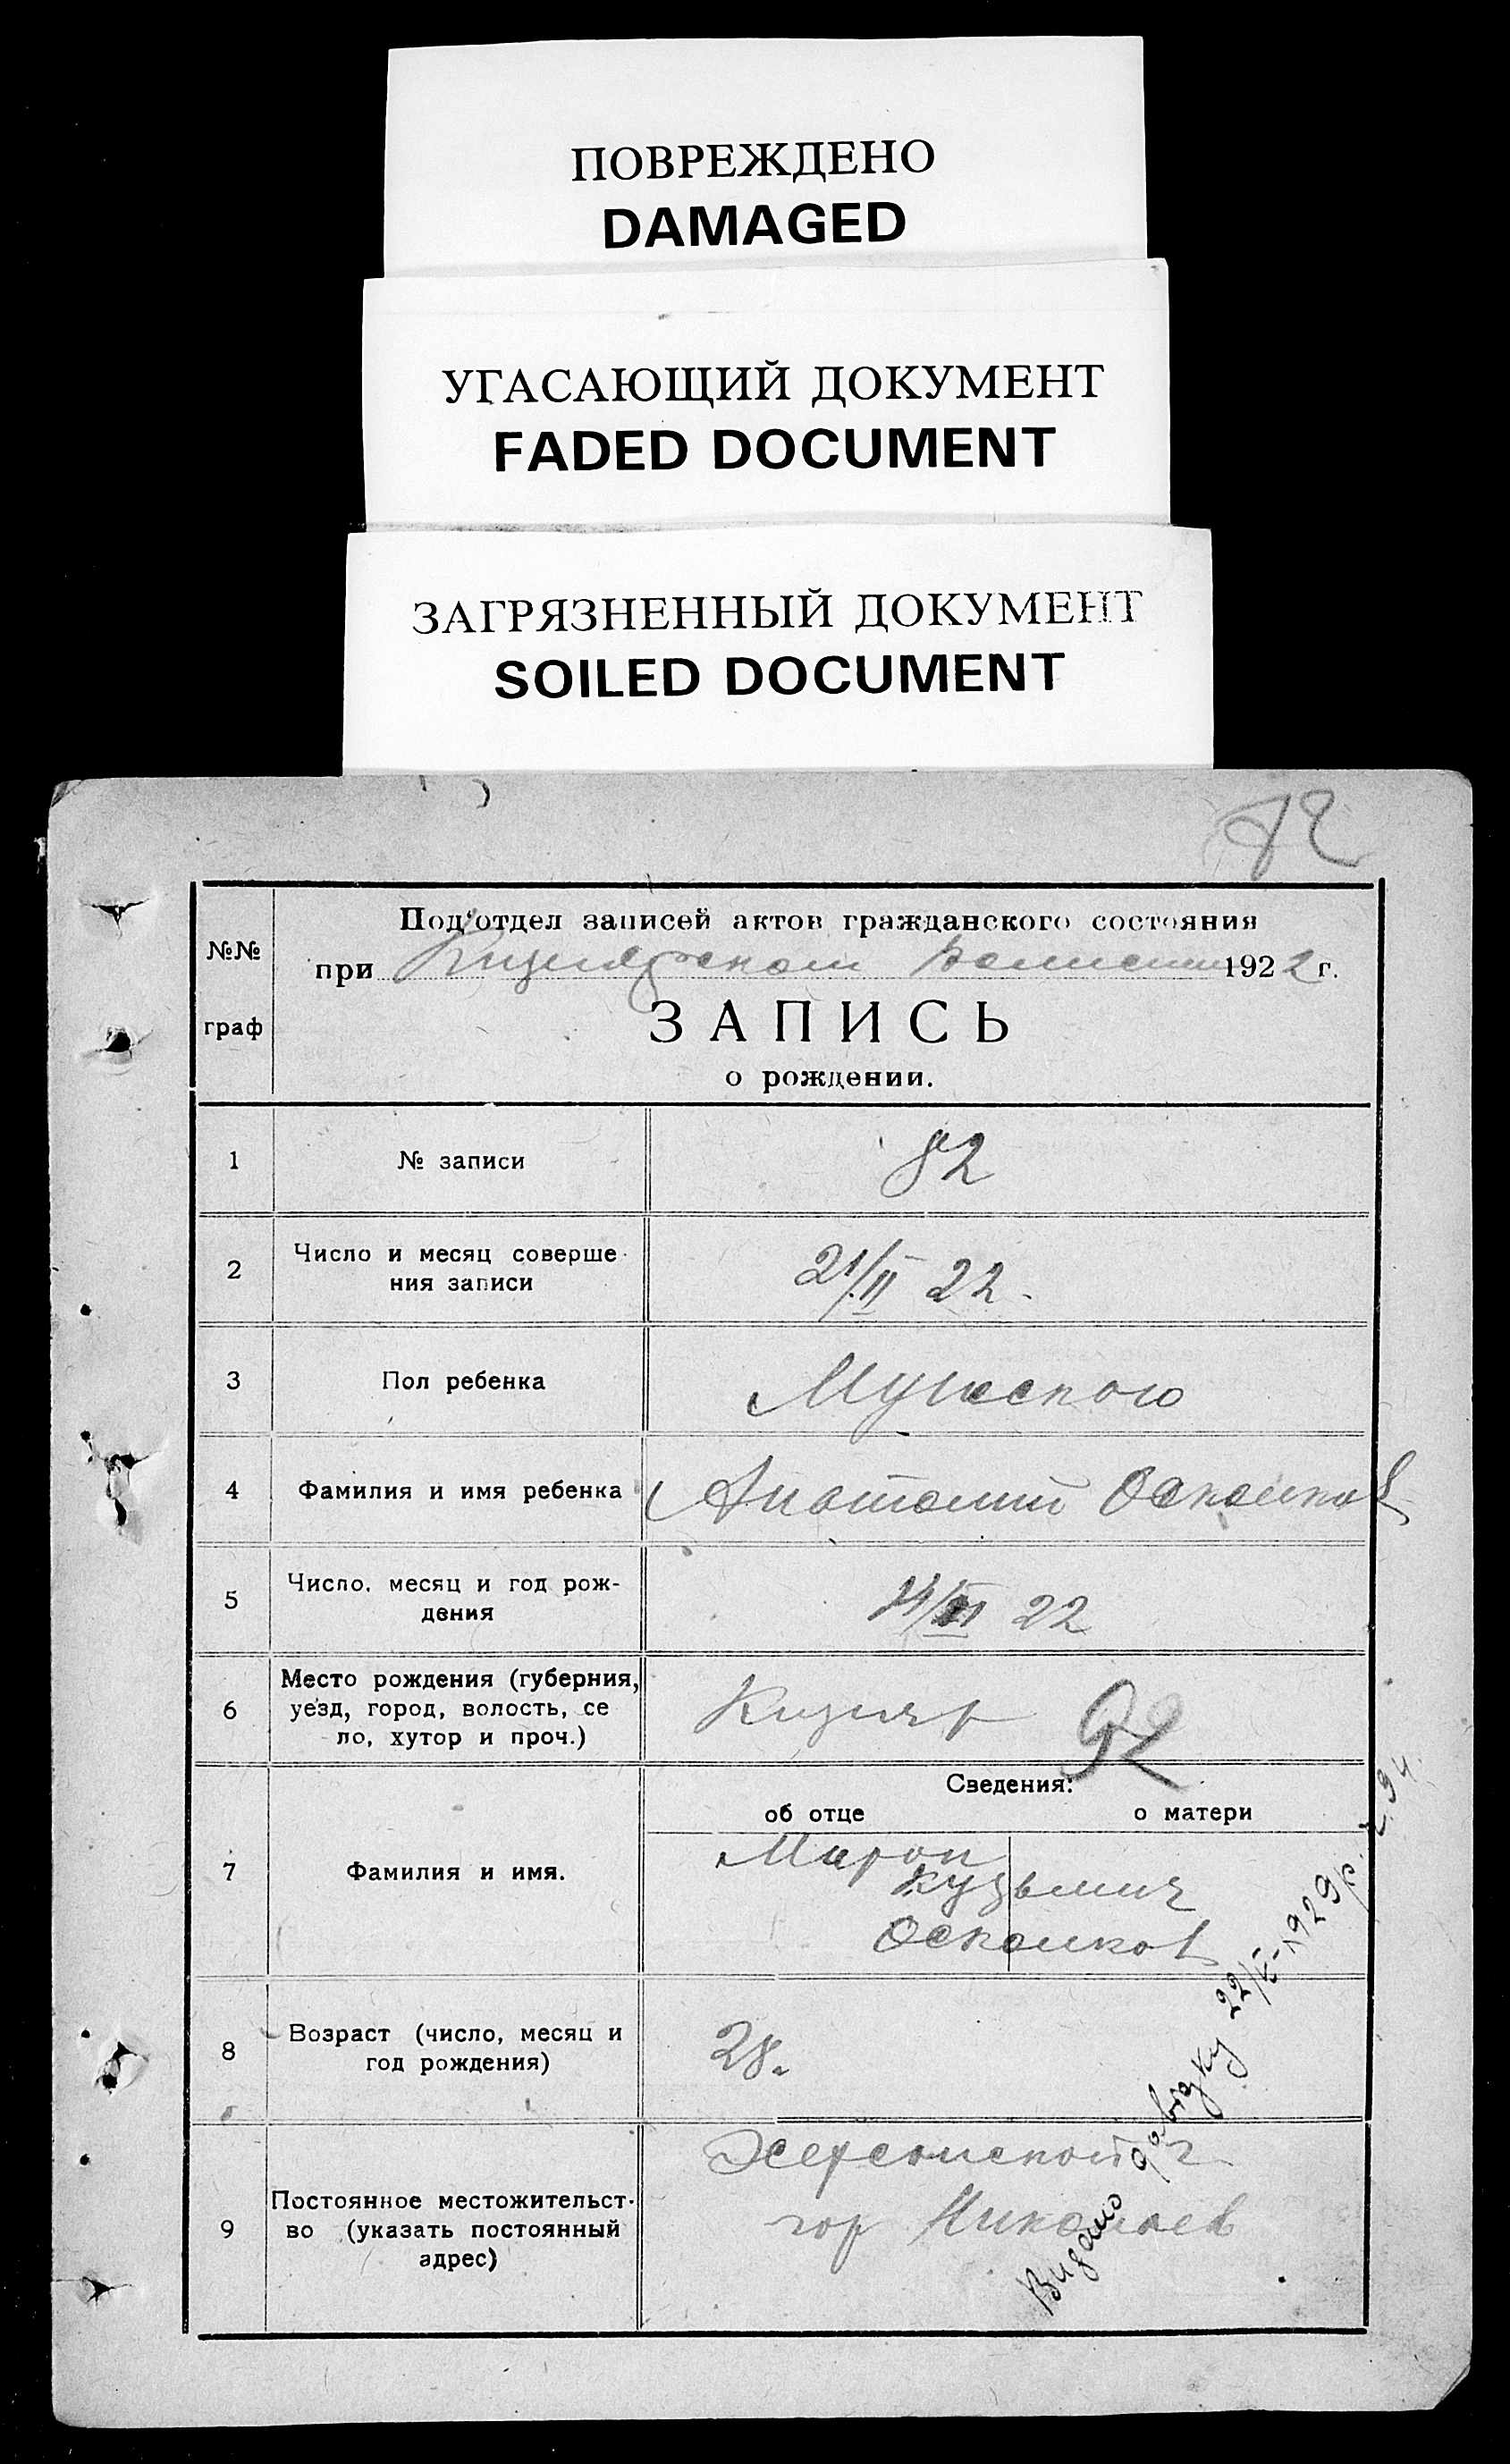 ПОВРЕЖДЕНО
DAMAGED
УГАСАЮЩИЙ ДОКУМЕНТ
FADED DOCUMENT
ЗАГРЯЗНЕННЫЙ ДОКУМЕНТ
SOILED DOCUMENT
82
№№
граф
Под‘отдел записей актов гражданского состояния
при Кизиярском 1922 г.
ЗАПИСЬ
о рождении.
1 № записи 82
2 Число и месяц соверше-
ния записи 21/II 22.
3 Пол ребенка Мужеского
4 Фамилия и имя ребенка Анатолий Осколков
5 Число, месяц и год рож-
дения 22
6 Место рождения (губерния,
уезд, город, волость, се
ло, хутор и проч.) Кизияр 92
Сведения:
об отце о матери
7 Фамилия и имя. Мирон
Кузьмич
Осколков
8 Возраст (число, месяц и
год рождения) 28.
9 Постоянное местожительст-
во (указать постоянный
адрес) Херсонской г
гор Николаев
Видано довідку 22/V-1929р.